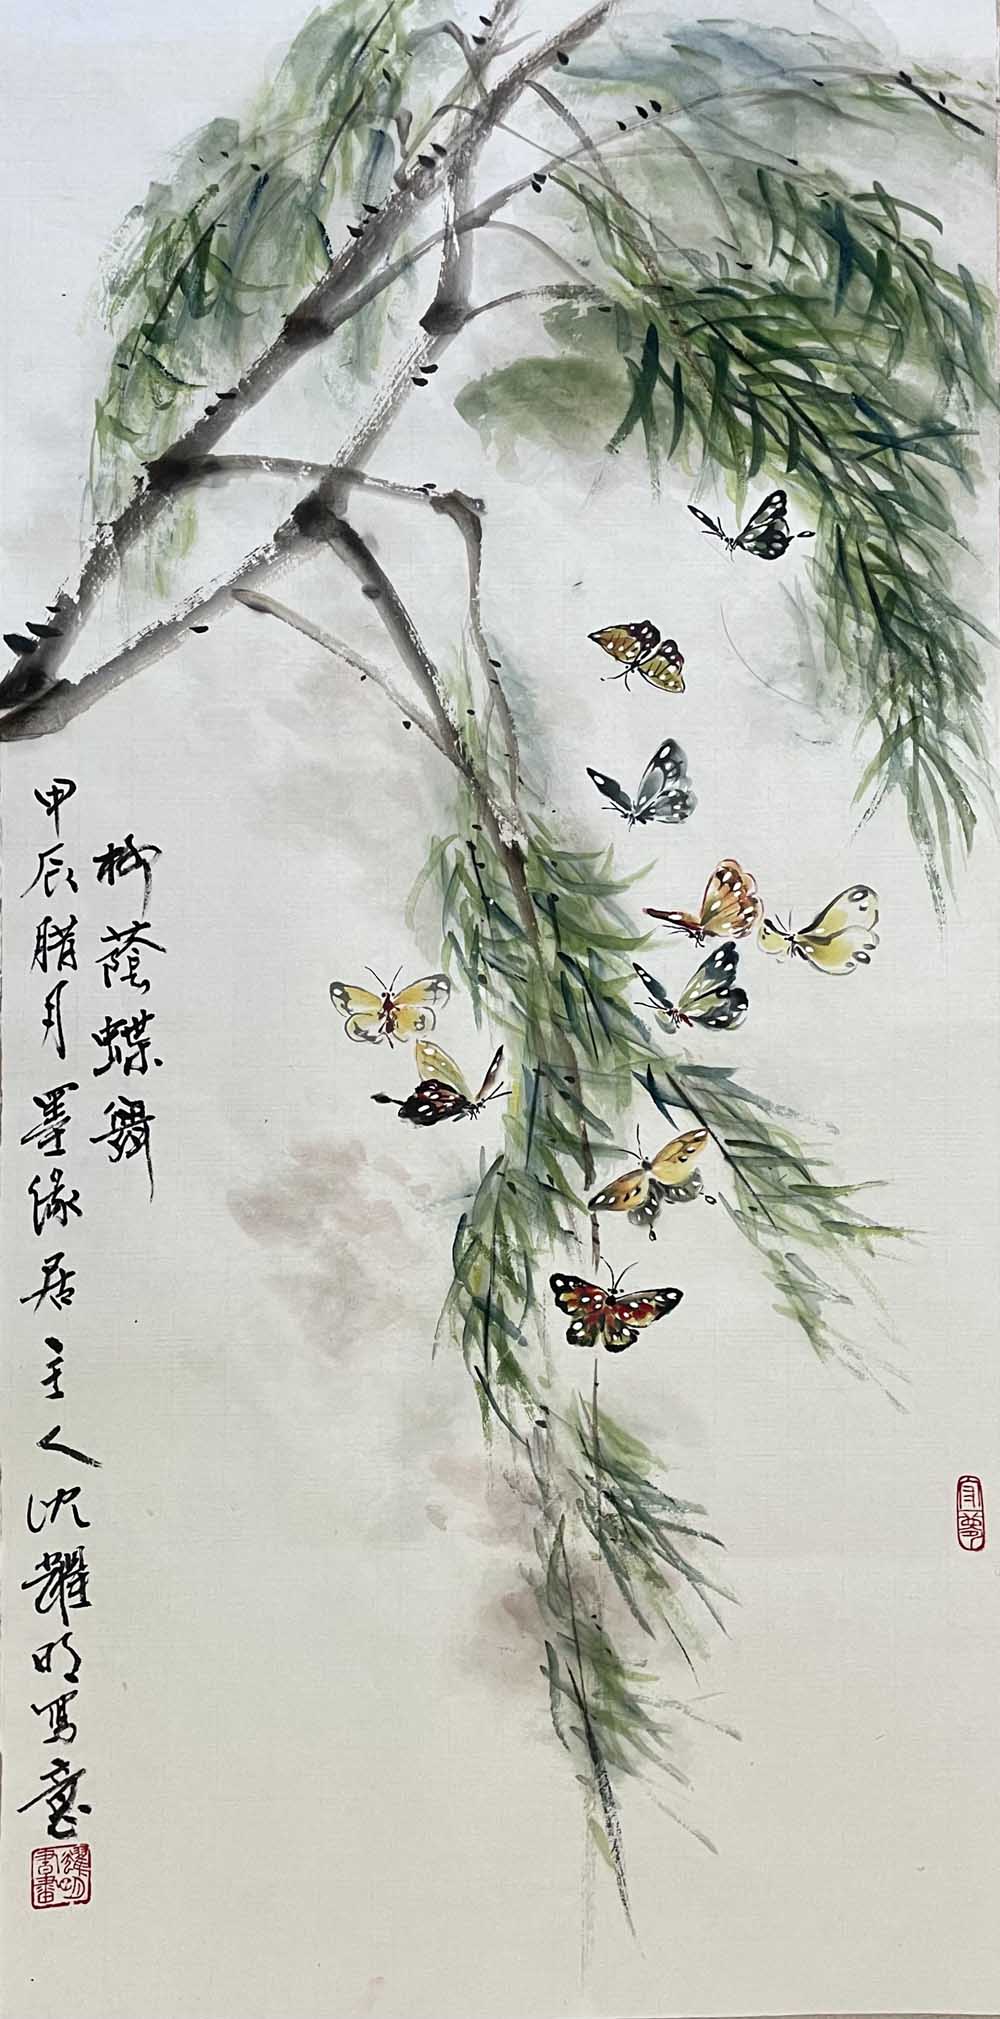 柳蔭蝶舞
甲辰腊月墨缘居主人沈耀明写意
耀明書畫